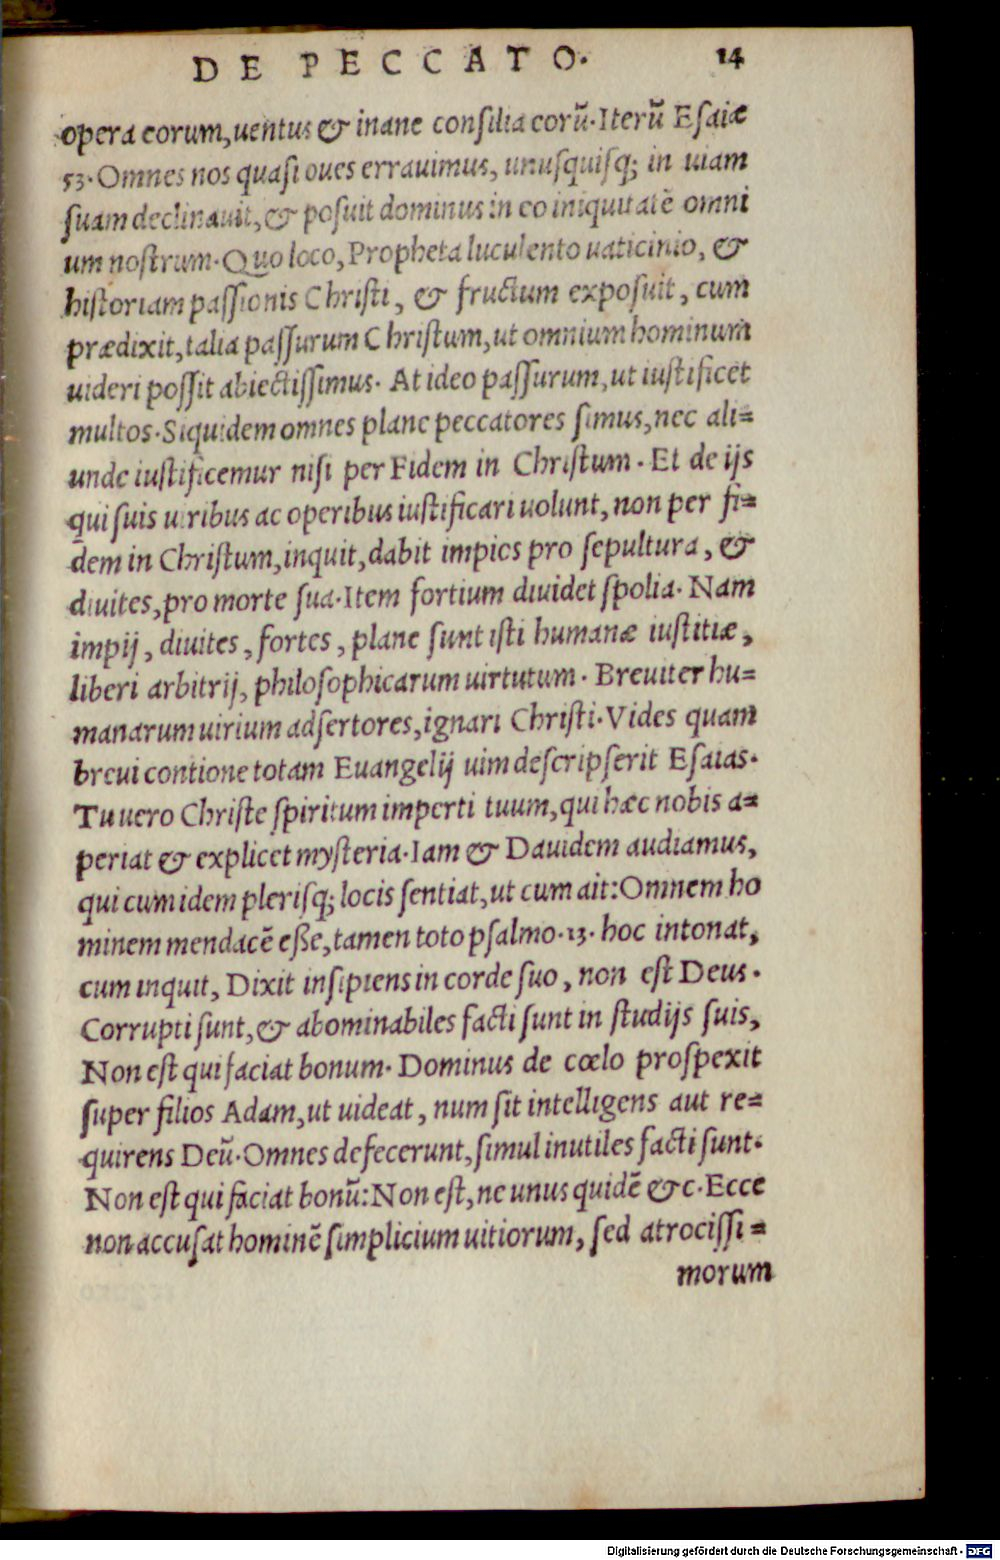 DE PECCATO. 14
opera eorum, uentus & inane consilia eorũ. Iterũ Esaiæ
53. Omnes nos quasi oues errauimus, unusquisq; in uiam
suam declinauit, & posuit dominus in eo iniquitatẽ omni
um nostrum. Quo loco, Propheta luculento uaticinio, &
historiam passionis Christi, & fructum exposuit, cum
prædixit, talia passurum Christum, ut omnium hominum
uideri possit abiectissimus. At ideo passurum, ut iustificet
multos. Siquidem omnes plane peccatores simus, nec ali=
unde iustificemur nisi per Fidem in Christum. Et de ijs
qui suis uiribus ac operibus iustificari uolunt, non per fi=
dem in Christum, inquit, dabit impios pro sepultura, &
diuites, pro morte sua. Item fortium diuidet spolia. Nam
impij, diuites, fortes, plane sunt isti humanæ iustitiæ,
liberi arbitrij, philosophicarum uirtutum. Breuiter hu=
manarum uirium adsertores, ignari Christi. Vides quam
breui contione totam Euangelij uim descripserit Esaias.
Tu uero Christe spiritum imperti tuum, qui hæc nobis a=
periat & explicet mysteria. Iam & Dauidem audiamus,
qui cum idem plerisq; locis sentiat, ut cum ait: Omnem ho
minem mendacẽ eße, tamen toto psalmo. 13. hoc intonat,
cum inquit, Dixit insipiens in corde suo, non est Deus.
Corrupti sunt, & abominabiles facti sunt in studijs suis,
Non est qui faciat bonum. Dominus de cœlo prospexit
super filios Adam, ut uideat, num sit intelligens aut re=
quirens Deũ. Omnes defecerunt, simul inutiles facti sunt.
Non est qui faciat bonũ: Non est, ne unus quidẽ &c. Ecce
non accusat hominẽ simplicium uitiorum, sed atrocissi=
morum
Digitalisierung gefördert durch die Deutsche Forschungsgemeinschaft - DFG